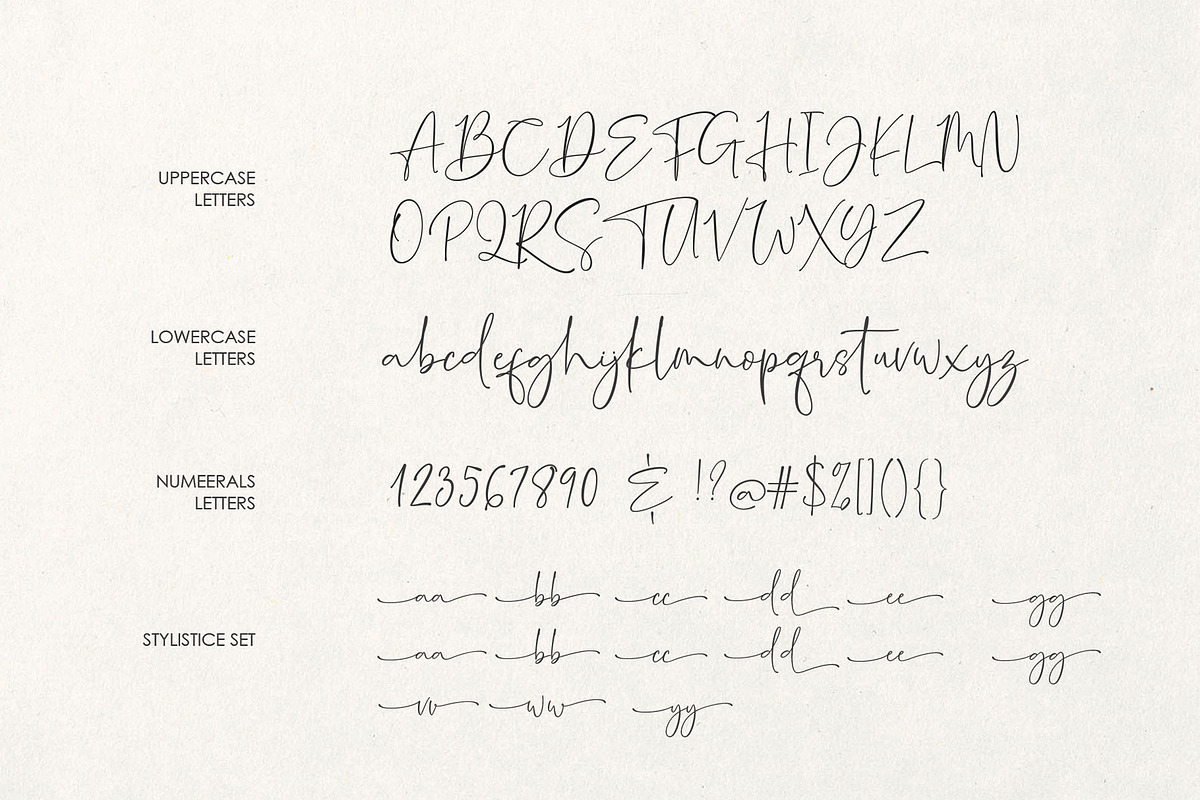 UPPERCASE
LETTERS
ABCDEFGHIJKLMN
OPQRSTUVWXYZ
LOWERCASE
LETTERS
abcdefghijklmnopqrstuvwxyz
NUMEERALS
LETTERS
123567890 & !?@#$%[](){}
STYLISTICE SET
aa bb cc dd ee gg
aa bb cc dd ee gg
vv ww yy